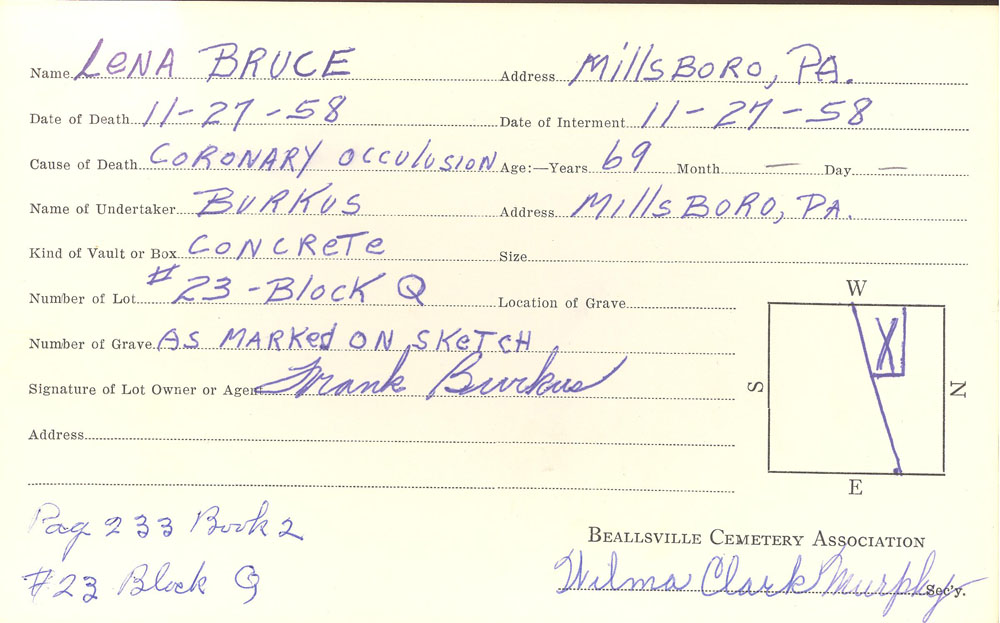 Name LeNA BRUCE Address MillsBORO, PA.
Date of Death 11-27-58 Date of Interment 11-27-58
Cause of Death CORONARY OCCULUSION Age:—Years 69 Month — Day —
Name of Undertaker BURKUS Address MillsBORO, PA.
Kind of Vault or Box CONCReTe Size
Number of Lot #23-BlocK Q Location of Grave
Number of Grave AS MARKed ON SKeTCH
Signature of Lot Owner or Agent Frank Burkus
Address
W
X
S
N
E
Pag 233 Book 2
#23 Block Q
BEALLSVILLE CEMETERY ASSOCIATION
Wilma Clark Murphy Sec'y.